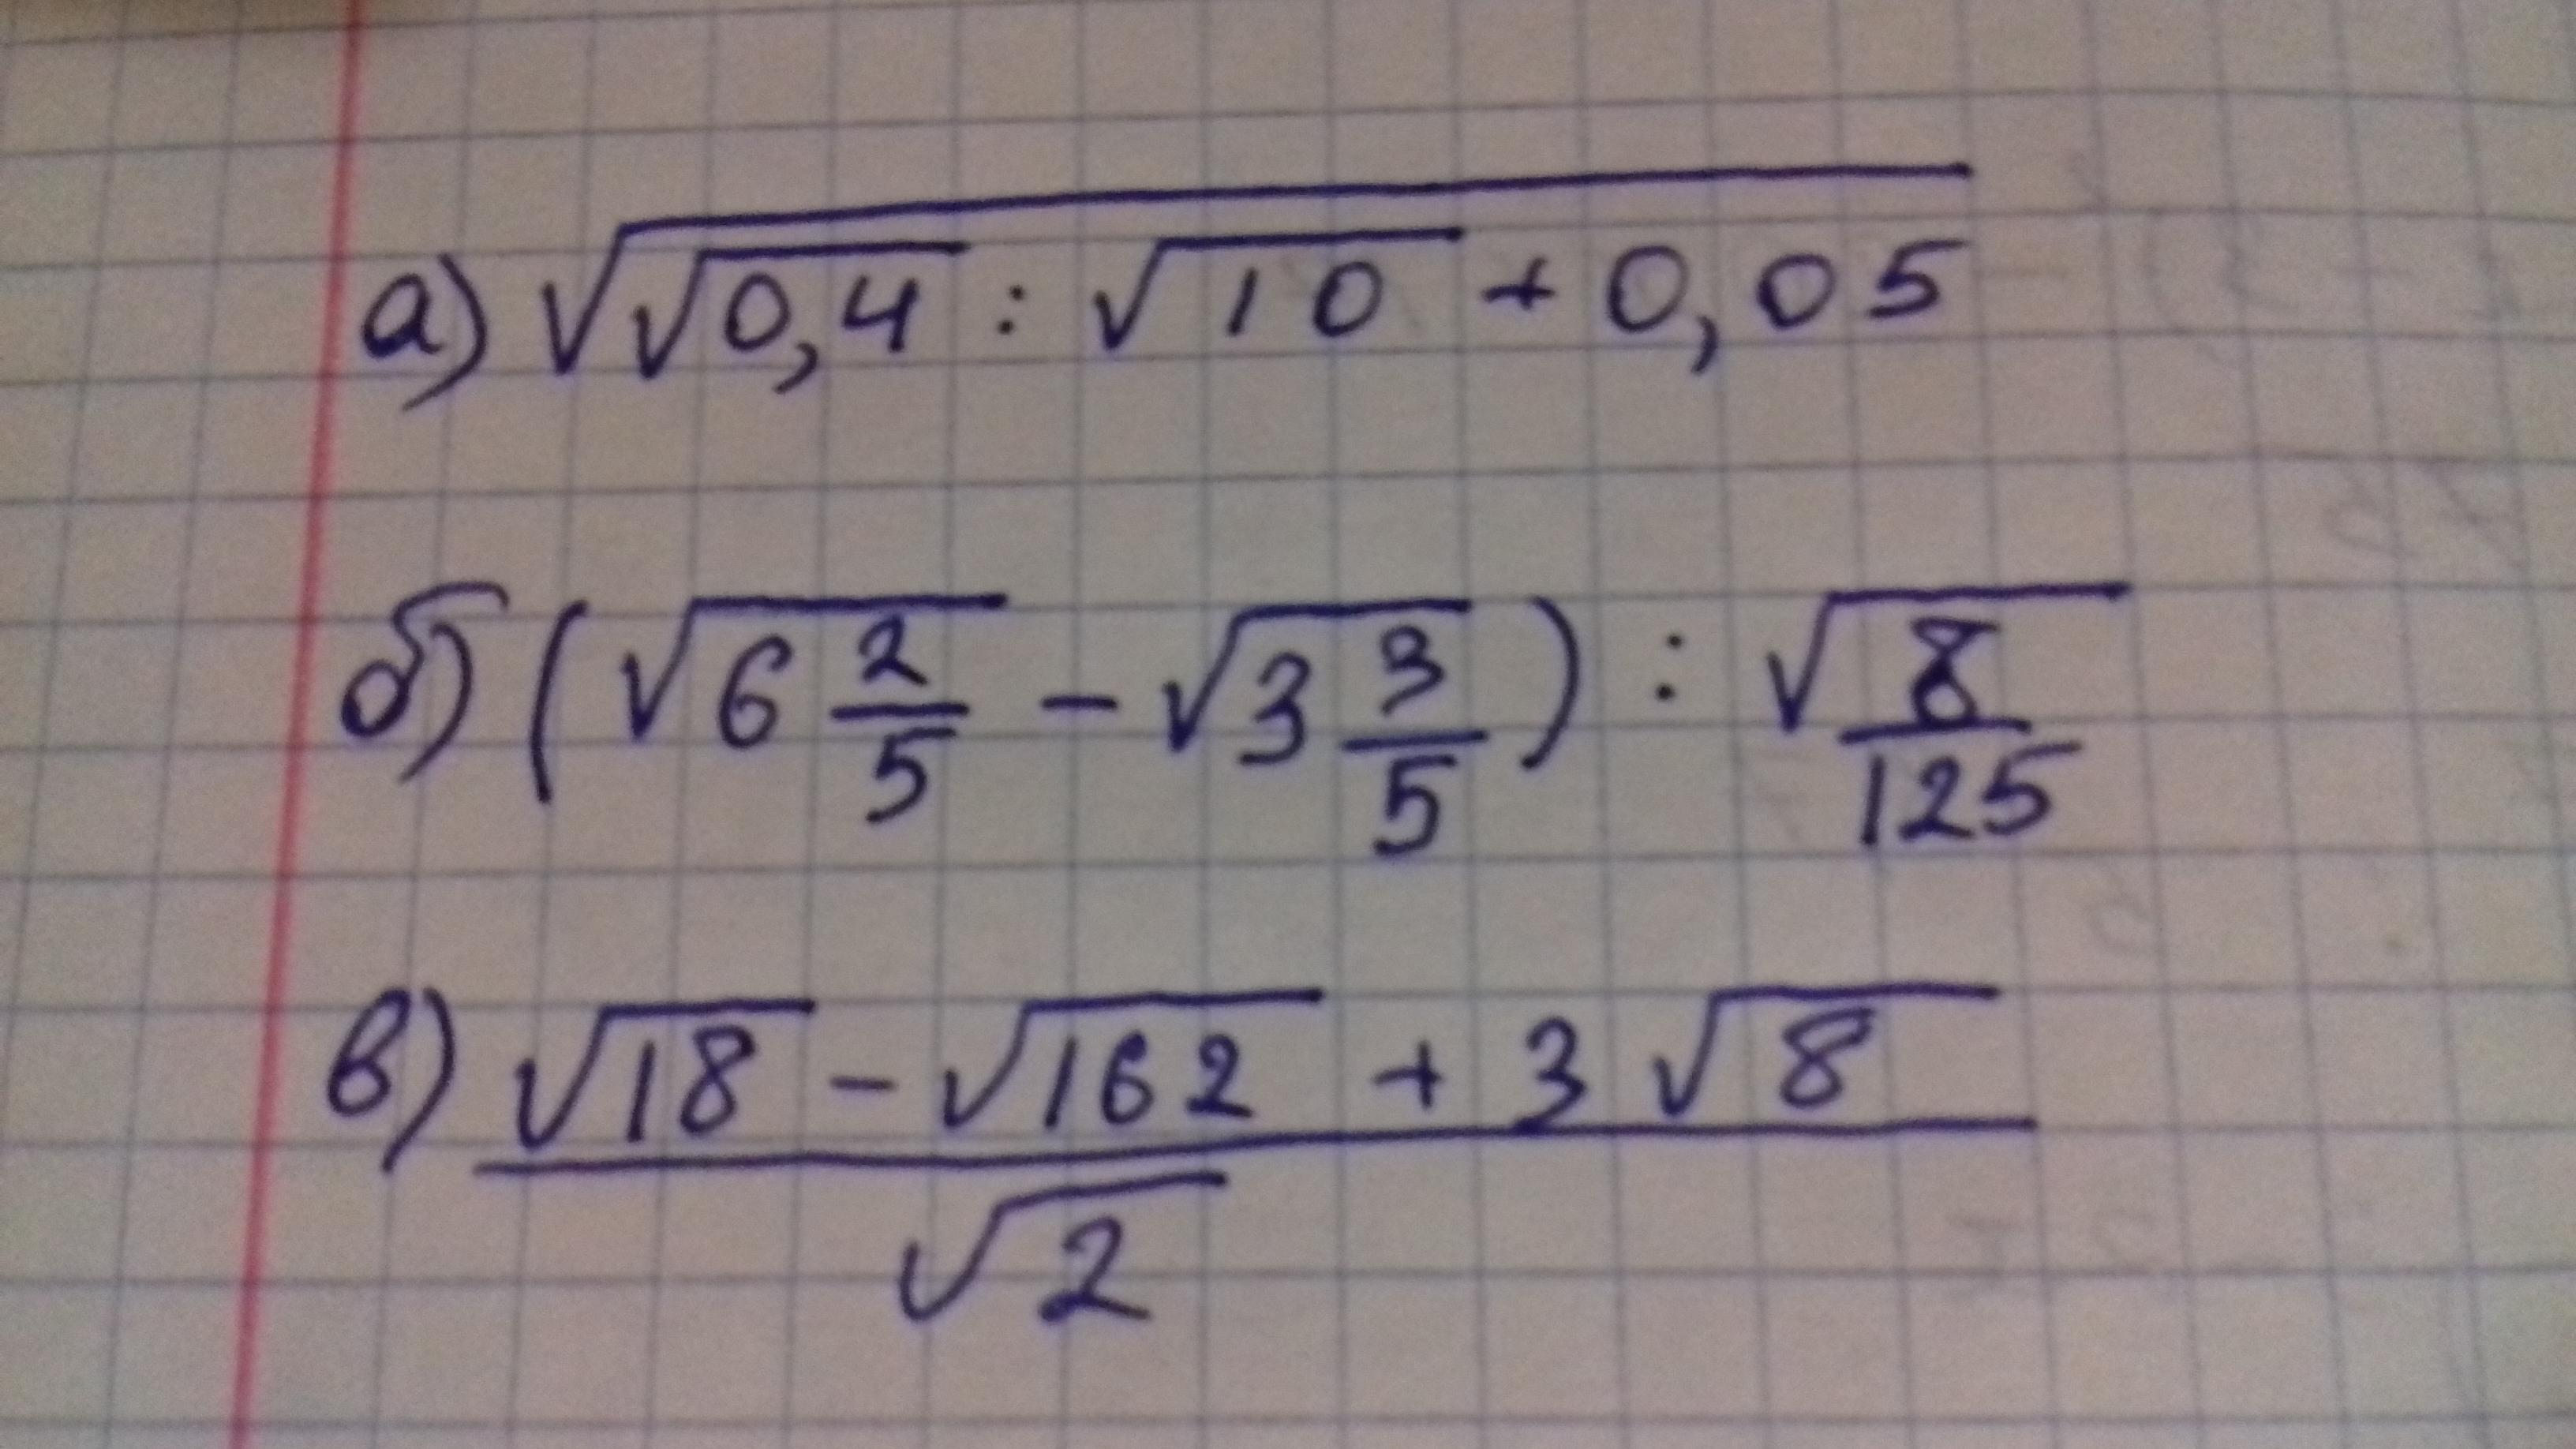 а) √(√0,4 : √10 + 0,05)
б) (√(6 2/5) - √(3 3/5)) : √(8/125)
в) (√18 - √162 + 3√8)/√2